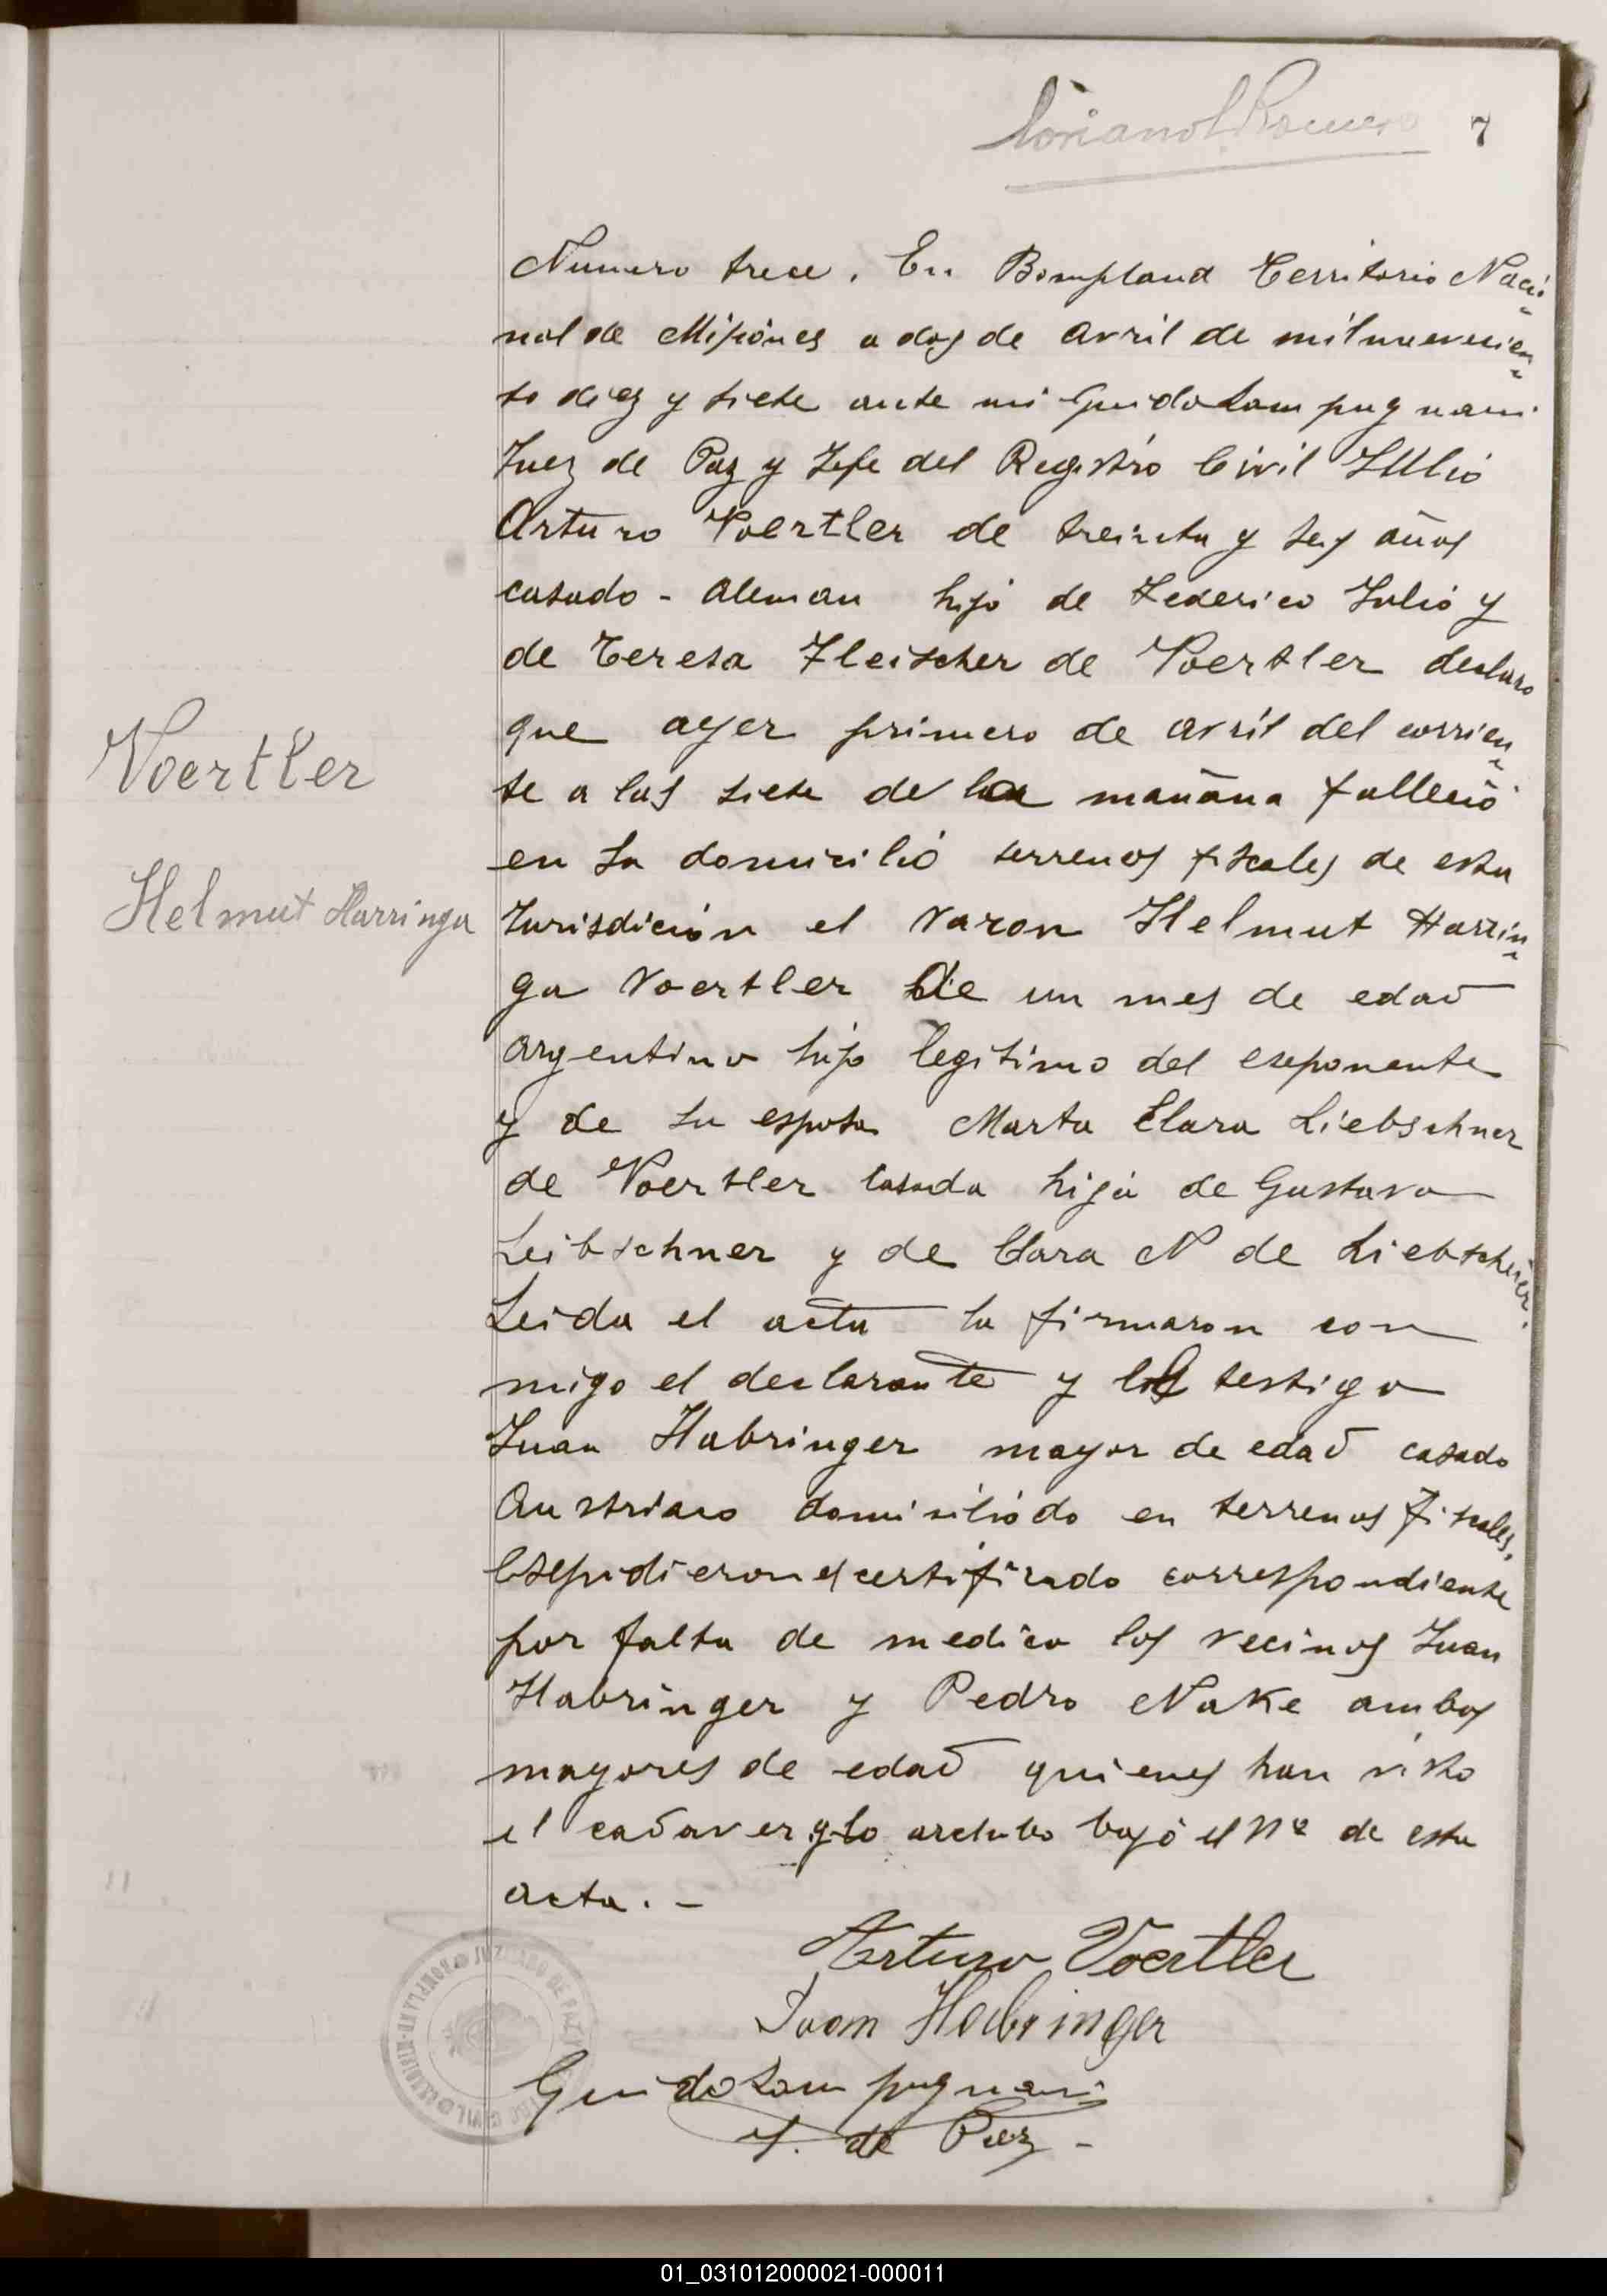 Soriano L. Romero 7
Numero trece. En Bompland Territorio Nacio-
nal de Misiones a dos de avril de mil nuevecien-
to diez y siete ante mi Guido Lampugnani
Juez de Paz y Jefe del Registro Civil Julio
Arturo Voertler de treinta y seis años
casado - Aleman hijo de Federico Julio y
de Teresa Fleischer de Voertler declaro
que ayer primero de avril del corrien-
te a las siete de la mañana fallecio
en su domicilio terrenos fiscales de esta
Jurisdicion el varon Helmut Harrin-
Voertler
ga Voertler de un mes de edad
Helmut Harringa
argentino hijo legitimo del esponente
y de su esposa Marta Clara Liebschner
de Voertler casada hija de Gustavo
Leibschner y de Clara N de Liebschner.
Leida el acta la firmaron con
migo el declarante y los testigo
Juan Habringer mayor de edad casado
Austriaco domisiliado en terrenos fiscales,
Espidieron el certificado correspondiente
por falta de medico los vecinos Juan
Habringer y Pedro Nake ambos
mayores de edad quienes han visto
el cadaver y lo archibo bajo el Nº de esta
acta. -
Arturo Voertler
Juan Habringer
Guido Lampugnani
J. de Paz -
JUZGADO DE PAZ
01_031012000021-000011